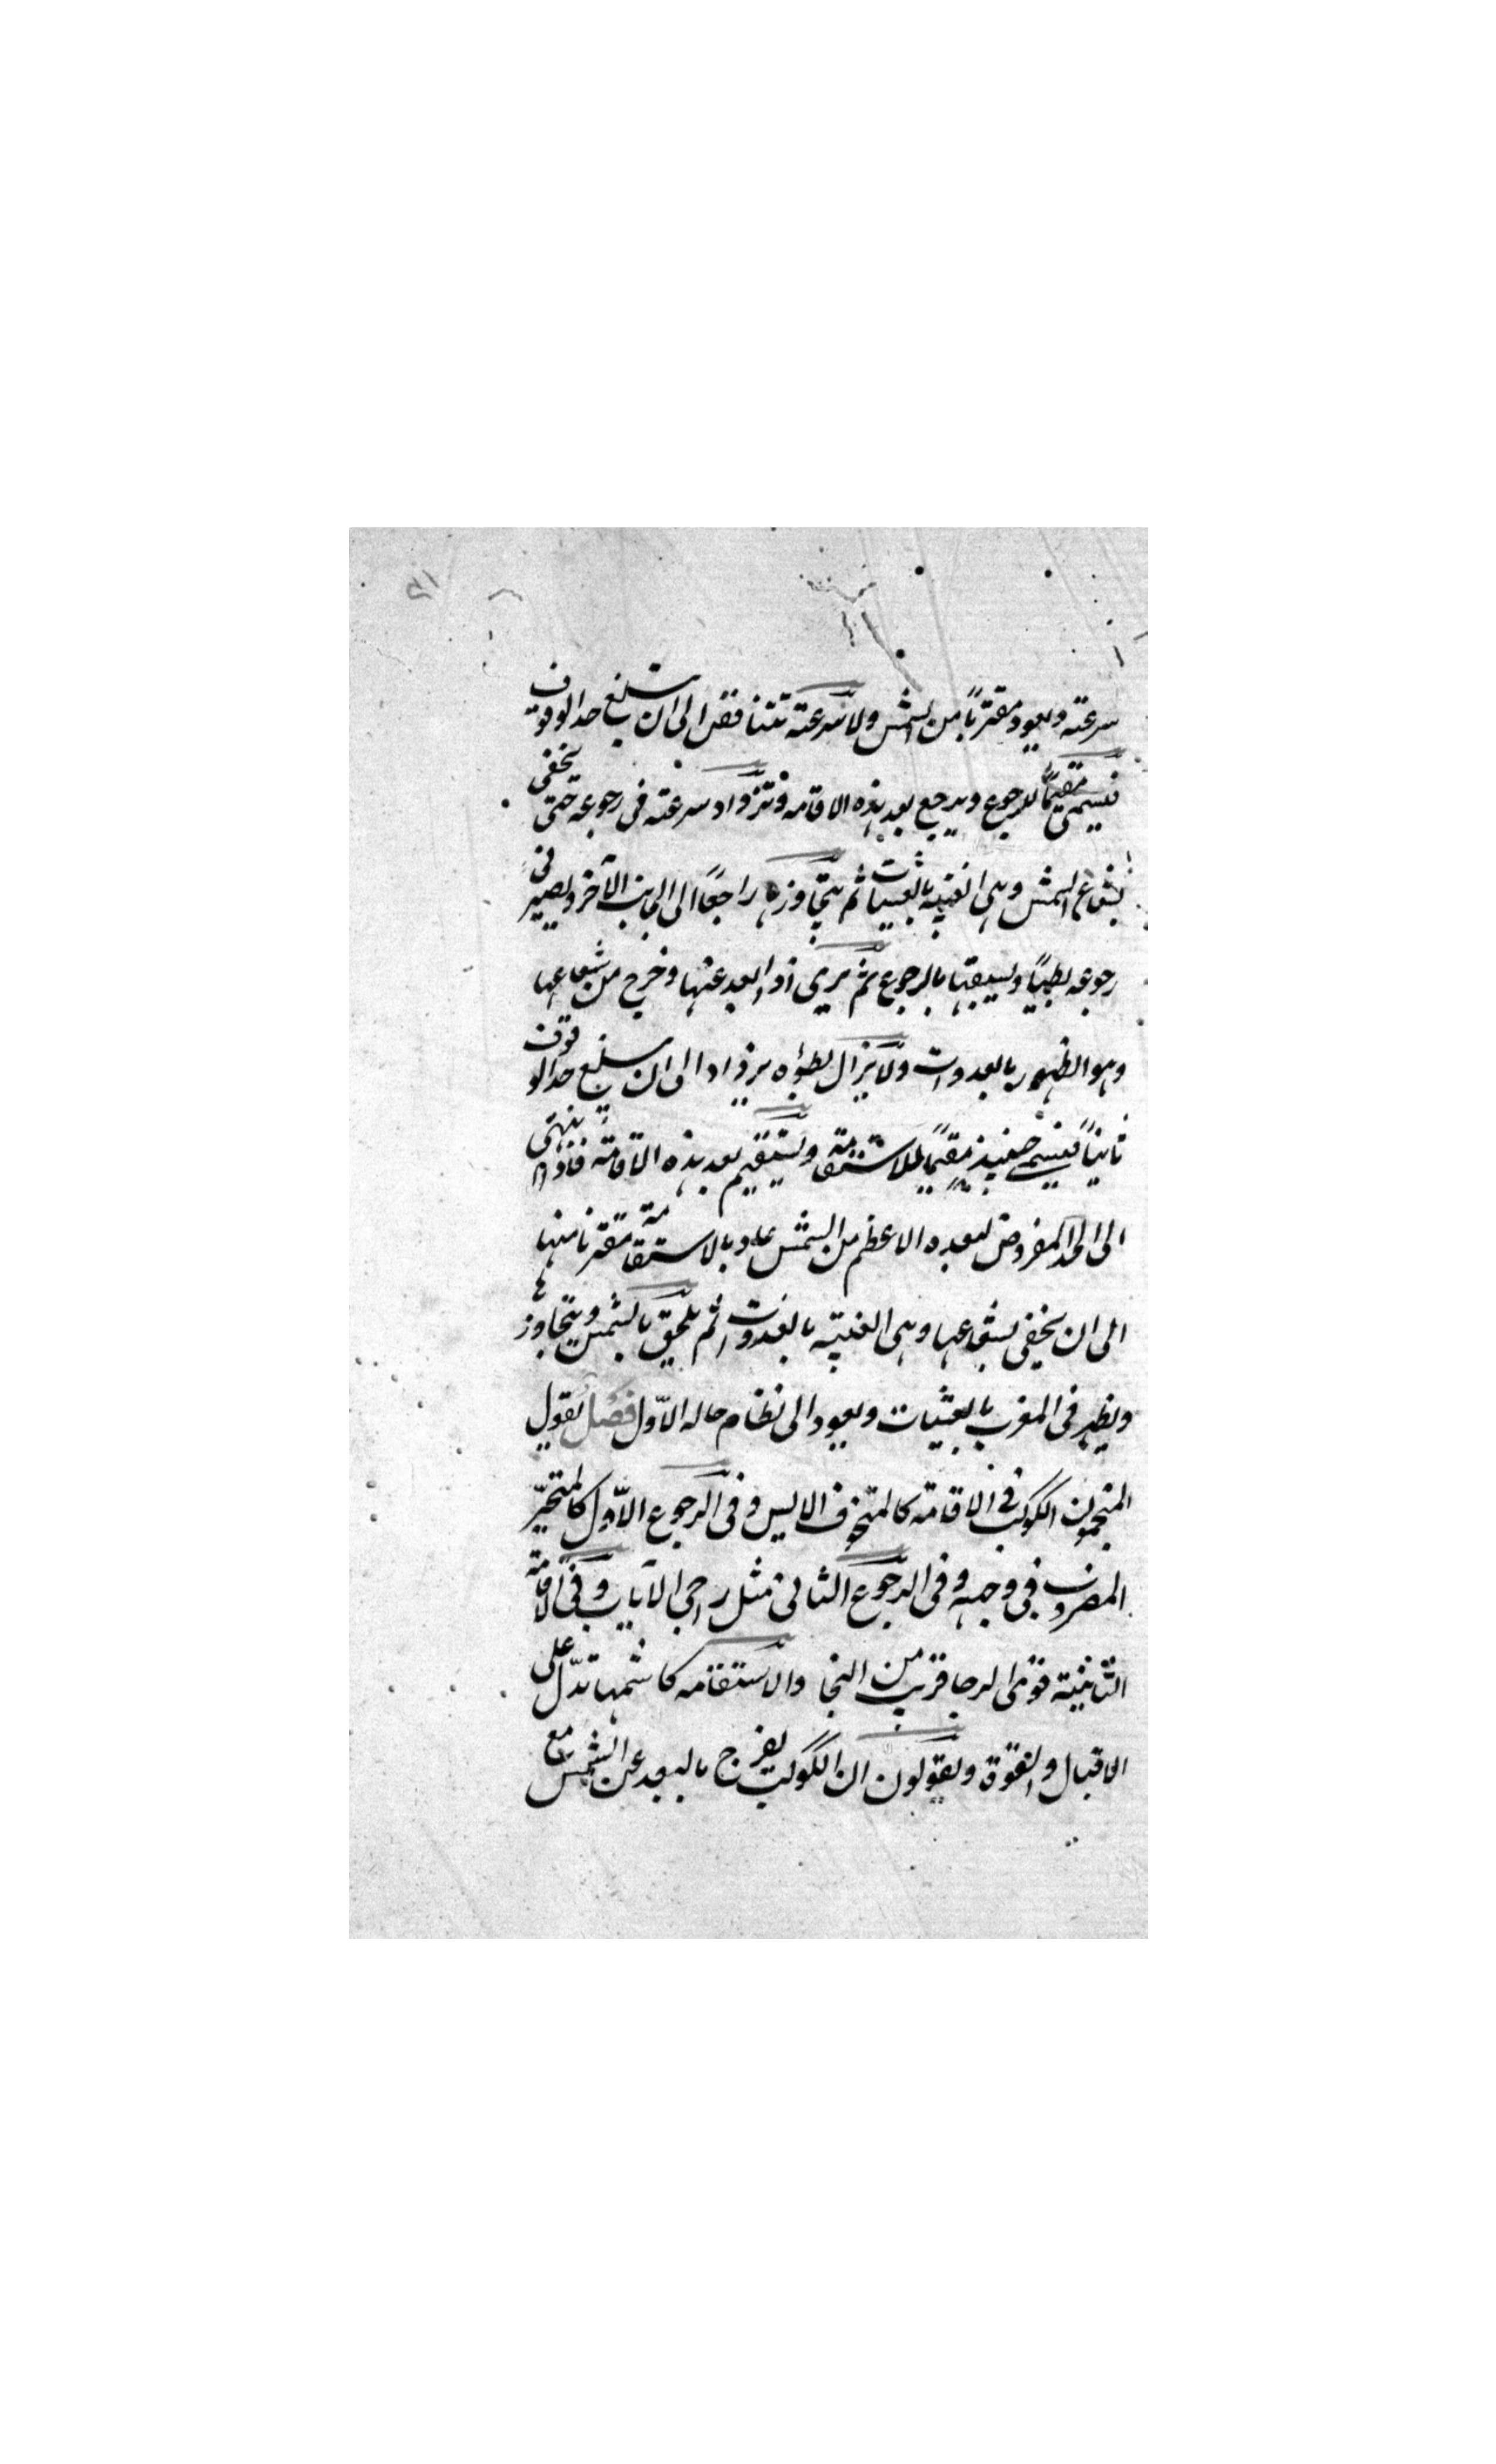 سرعته ويعود مقترباً من الشمس ولا سرعته تتناقص الى ان يبلغ حد الوقوف
فيسمى مقيماً للرجوع ويرجع بعد هذه الاقامه وتتزواد سرعته فى رجوعه حتى يخفى
بشعاع الشمس وهى الغيبه بالعشيات ثم يتجاوزها راجعاً الى الجانب الآخر ويصير فى
رجوعه بطيئاً ويسبقها بالرجوع ثم يرى اذا ابعد عنها وخرج من شعاعها
وهو الظهور بالغدوات ولا يزال بطؤه يزداد الى ان يبلغ حد الوقوف
ثانياً فيسمى حينئذ مقيماً للاستقامة ويستقيم بعد هذه الاقامة فاذا انتهى
الى الحد المفروض لبعده الاعظم من الشمس عاد بالاستقامة مقترنا منها
الى ان يخفى بشعاعها وهى الغيبة بالغدوات ثم يلحق بالشمس ويتجاوزها
ويظهر فى المغرب بالعشيات ويعود الى نظام حاله الاول فصل يقول
المنجمون الكوكب فى الاقامة كالمتخوف الايس وفى الرجوع الاول كالمتحير
المصروف فى وجهه وفى الرجوع الثانى مثل راجى الاياب وفى الاقامة
الثانية قوى الرجا قريب من النجا والاستقامه كاسمها تدل على
الاقبال والقوة ويقولون ان الكوكب يفرج بالبعد عن الشمس مع